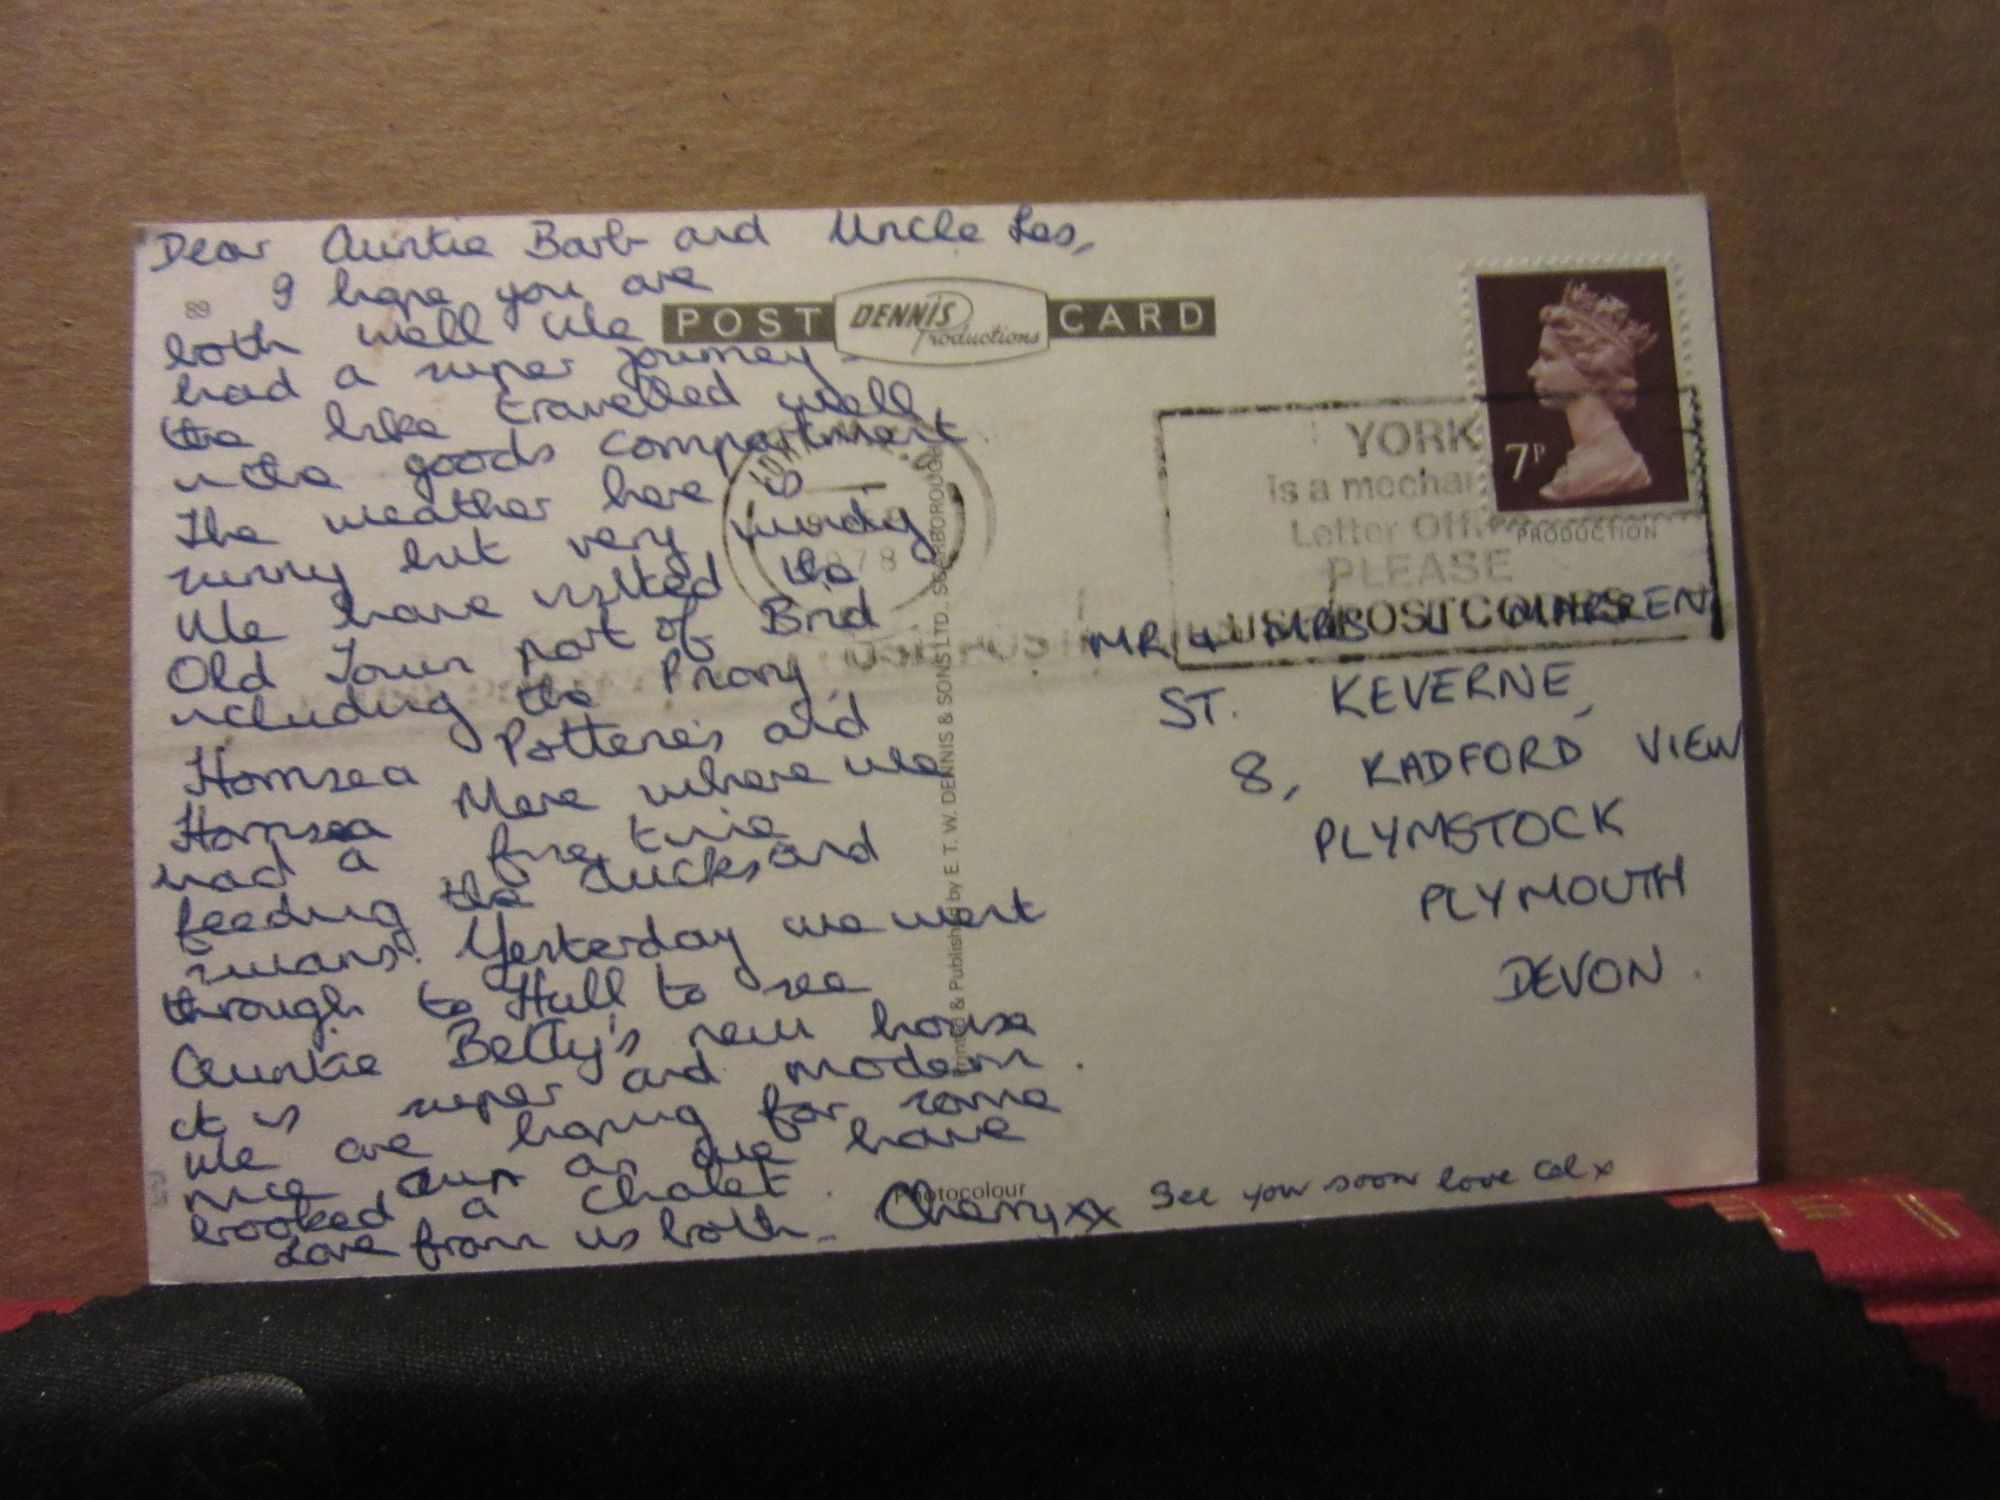 Dear Auntie Barb and Uncle Les,
I hope you are
both well We
had a super journey -
the bike travelled well
in the goods compartment.
The weather here is
sunny but very windy
We have visited the
Old Town part of Brid
including the Priory,
Hornsea Potteries and
Hornsea Mere where we
had a fine time
feeding the ducks and
swans. Yesterday we went
through to Hull to see
Auntie Betty's new house
it is super and modern.
We are hoping for some
nice sun as we have
booked a chalet.
Love from us both. Cherryxx
See you soon love Col x
89
POST CARD
DENNIS
Productions
Printed & Published by E. T. W. DENNIS & SONS LTD., SCARBOROUGH
Photocolour
7P
PRODUCTION
YORK
is a mechan
Letter Offi
PLEASE
USE POSTCODES
78
MR & MRS L WARREN
ST. KEVERNE,
8, RADFORD VIEW
PLYMSTOCK
PLYMOUTH
DEVON.